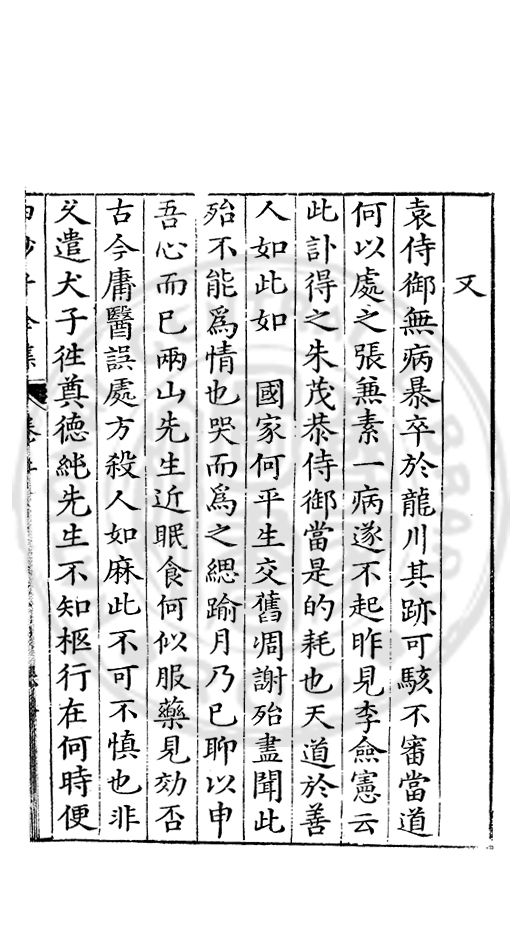 又
袁侍御無病暴卒於龍川其跡可駭不審當道
何以處之張無素一病遂不起昨見李僉憲云
此訃得之朱茂恭侍御當是的耗也天道於善
人如此如　國家何平生交舊凋謝殆盡聞此
殆不能爲情也哭而爲之緦踰月乃已聊以申
吾心而已兩山先生近眠食何似服藥見効否
古今庸醫誤處方殺人如麻此不可不慎也非
久遣犬子徃奠德純先生不知柩行在何時便